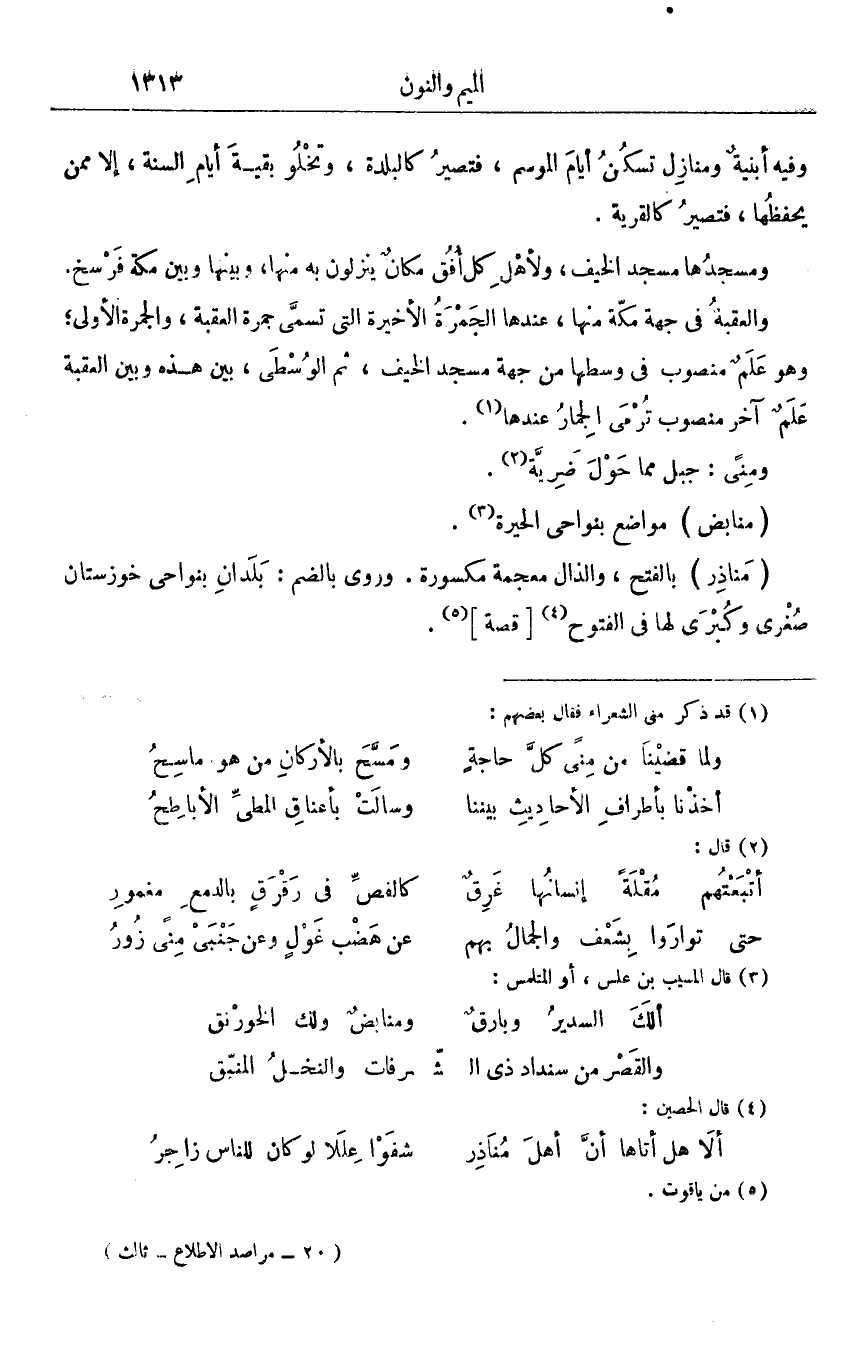 الميم والنون ١٣١٣
وفيه أبنيةٌ ومنازِل تسكُنُ أيامَ الموسم ، فتصيرُ كالبلدة ، وتخْلُو بقيةَ أيامِ السنة ، إلا ممن
يحفظُها ، فتصيرُ كالقرية .
ومسجدُها مسجد الخيف ، ولأهْلِ كل أُفُق مكانٌ ينزلون به منها، وبينها وبين مكة فَرْسخ.
والعقبةُ فى جهة مكّة منها ، عندها الجَمْرَةُ الأخيرة التى تسمَّى جمرة العقبة ، والجمرة الأولى؛
وهو عَلَمٌ منصوب فى وسطها من جهة مسجد الخيف ، ثم الوُسْطَى ، بين هذه وبين العقبة
عَلَمٌ آخر منصوب تُرْمَى الجِمارُ عندها(١) .
ومِنًى : جبل مما حَوْلَ ضَرِيَّة(٢) .
( منابض ) مواضع بنواحى الحيرة(٣) .
( مَناذِر ) بالفتح ، والذال معجمة مكسورة . وروى بالضم : بَلَدانِ بنواحى خوزستان
صُغْرى وكُبْرَى لها فى الفتوح(٤) [ قصة ](٥) .
(١) قد ذكر منى الشعراء فقال بعضهم :
ولما قضيْنَا من مِنًى كلَّ حاجةٍ ومَسَّحَ بالأركانِ من هو ماسِحُ
أخذْنا بأطرافِ الأحاديثِ بيننا وسالَتْ بأعناقِ المطىِّ الأباطِحُ
(٢) قال :
أتْبَعْتُهم مُقْلَةً إنسانُها غَرِقٌ كالفصِّ فى رَقْرَقٍ بالدمعِ مغمورِ
حتى توارَوا بِشَعْف والجمالُ بهم عن هَضْب غَوْلٍ وعن جَنْبَىْ مِنًى زُورُ
(٣) قال المسيب بن علس ، أو المتلمس :
ألَكَ السديرُ وبارقٌ ومنابضٌ ولك الخورْنق
والقَصْر من سنداد ذى ال شّرفات والنخلُ المنبّق
(٤) قال الحصين :
ألَا هل أتاها أنَّ أهلَ مُنَاذِر شفَوْا عِلَلا لو كان للناس زاجِرُ
(٥) من ياقوت .
( ٢٠ ــ مراصد الاطلاع ــ ثالث )